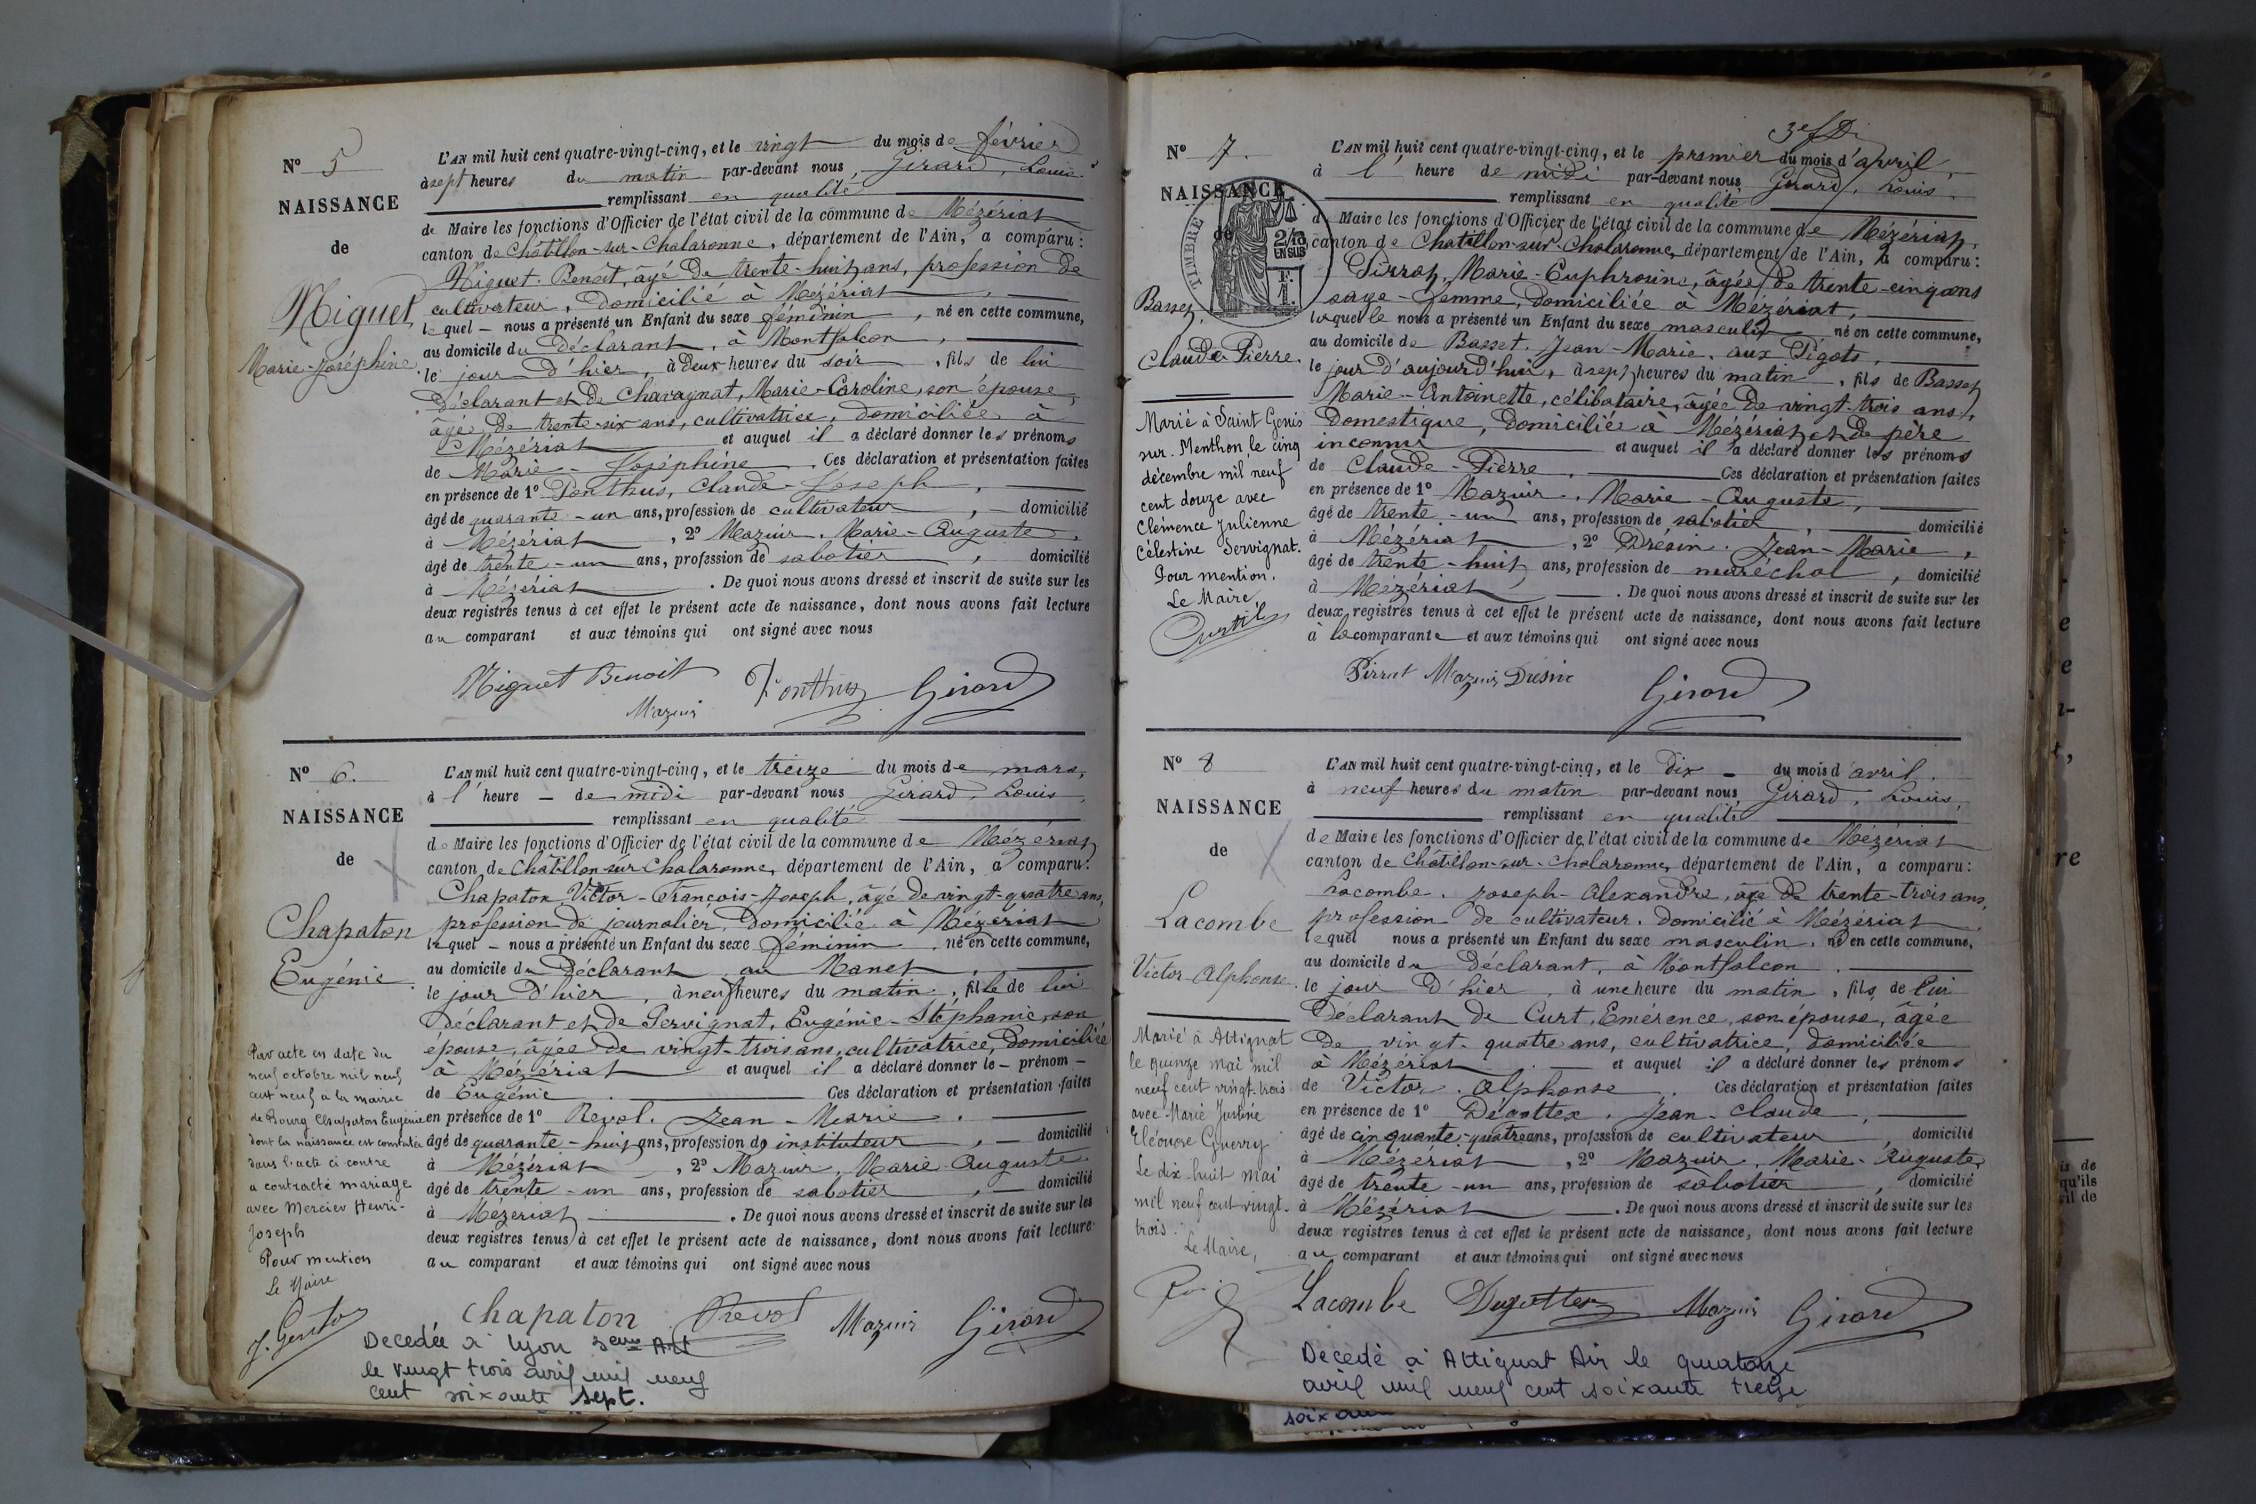 N° 5
NAISSANCE
de
Miguet,
Marie-Joséphine.
L'AN mil huit cent quatre-vingt-cinq, et le vingt du mois de février
à sept heures du matin par-devant nous, Girard, Louis
remplissant en qualité
de Maire les fonctions d'Officier de l'état civil de la commune de Mézériat
canton de Châtillon-sur-Chalaronne, département de l'Ain, a comparu :
Miguet Benoit, âgé de trente-huit ans, profession de
cultivateur, domicilié à Mézériat,
lequel nous a présenté un Enfant du sexe féminin, né en cette commune,
au domicile du déclarant, à Montfalcon,
le jour d'hier, à deux heures du soir, fils de lui
déclarant et de Chavagnat, Marie-Caroline, son épouse,
âgée de trente-six ans, cultivatrice, domiciliée à
Mézériat et auquel il a déclaré donner les prénoms
de Marie-Joséphine. Ces déclaration et présentation faites
en présence de 1° Ponthus, Claude-Joseph,
âgé de quarante-un ans, profession de cultivateur, domicilié
à Mézériat, 2° Mazuir, Marie-Auguste,
âgé de trente-un ans, profession de sabotier, domicilié
à Mézériat. De quoi nous avons dressé et inscrit de suite sur les
deux registres tenus à cet effet le présent acte de naissance, dont nous avons fait lecture
au comparant et aux témoins qui ont signé avec nous
Miguet Benoit Ponthus Girard
Mazuir
N° 6.
NAISSANCE
de
Chapaton
Eugénie.
Par acte en date du
neuf octobre mil neuf
cent neuf à la mairie
de Bourg Chapaton Eugénie
dont la naissance est constatée
dans l'acte ci contre
a contracté mariage
avec Mercier Henri-
Joseph
Pour mention
Le Maire
L'AN mil huit cent quatre-vingt-cinq, et le treize du mois de mars,
à l'heure de midi par-devant nous Girard, Louis,
remplissant en qualité
de Maire les fonctions d'Officier de l'état civil de la commune de Mézériat
canton de Châtillon-sur-Chalaronne, département de l'Ain, a comparu :
Chapaton, Victor-François-Joseph, âgé de vingt-quatre ans,
profession de journalier, domicilié à Mézériat
lequel nous a présenté un Enfant du sexe féminin, né en cette commune,
au domicile du déclarant, au Manet,
le jour d'hier, à neuf heures du matin, fille de lui
déclarant et de Servignat, Eugénie-Stéphanie, son
épouse, âgée de vingt-trois ans, cultivatrice, domiciliée
à Mézériat et auquel il a déclaré donner le prénom
de Eugénie. Ces déclaration et présentation faites
en présence de 1° Revol, Jean-Marie,
âgé de quarante-huit ans, profession de instituteur, domicilié
à Mézériat, 2° Mazuir, Marie-Auguste
âgé de trente-un ans, profession de sabotier, domicilié
à Mézériat. De quoi nous avons dressé et inscrit de suite sur les
deux registres tenus à cet effet le présent acte de naissance, dont nous avons fait lecture
au comparant et aux témoins qui ont signé avec nous
Chapaton Revol Mazuir Girard
Decedée à Lyon 3eme Art
le vingt trois avril mil neuf
cent soixante sept.
N° 7.
NAISSANCE
de
TIMBRE
2/10
EN SUS
F.
1.
Basset,
Claude-Pierre.
Marié à Saint Genis
sur-Menthon le cinq
décembre mil neuf
cent douze avec
Clémence Julienne
Célestine Servignat.
Pour mention.
Le Maire
L'AN mil huit cent quatre-vingt-cinq, et le premier du mois d'avril,
à l'heure de midi par-devant nous, Girard, Louis,
remplissant en qualité
de Maire les fonctions d'Officier de l'état civil de la commune de Mézériat,
canton de Châtillon-sur-Chalaronne, département de l'Ain, a comparu :
Pirrat, Marie-Euphrosine, âgée de trente-cinq ans
sage-femme, domiciliée à Mézériat,
laquelle nous a présenté un Enfant du sexe masculin né en cette commune,
au domicile de Basset, Jean-Marie, aux Pigots,
le jour d'aujourd'hui, à sept heures du matin, fils de Basset
Marie-Antoinette, célibataire, âgée de vingt-trois ans,
domestique, domiciliée à Mézériat et de père
inconnu et auquel il a déclaré donner les prénoms
de Claude-Pierre. Ces déclaration et présentation faites
en présence de 1° Mazuir, Marie-Auguste,
âgé de trente-un ans, profession de sabotier, domicilié
à Mézériat, 2° Drésin, Jean-Marie,
âgé de trente-huit ans, profession de maréchal, domicilié
à Mézériat. De quoi nous avons dressé et inscrit de suite sur les
deux registres tenus à cet effet le présent acte de naissance, dont nous avons fait lecture
à la comparante et aux témoins qui ont signé avec nous
Pirrat Mazuir Drésin Girard
N° 8
NAISSANCE
de
Lacombe
Victor-Alphonse.
Marié à Attignat
le quinze mai mil
neuf cent vingt-trois
avec Marie Justine
Eléonore Guerry
Le dix-huit mai
mil neuf cent vingt-
trois.
Le Maire,
L'AN mil huit cent quatre-vingt-cinq, et le dix du mois d'avril.
à neuf heures du matin par-devant nous, Girard, Louis,
remplissant en qualité
de Maire les fonctions d'Officier de l'état civil de la commune de Mézériat
canton de Châtillon-sur-Chalaronne, département de l'Ain, a comparu :
Lacombe, Joseph-Alexandre, âgé de trente-trois ans,
profession de cultivateur, domicilié à Mézériat
lequel nous a présenté un Enfant du sexe masculin, né en cette commune,
au domicile du déclarant, à Montfalcon,
le jour d'hier, à une heure du matin, fils de lui
déclarant de Curt, Emérence, son épouse, âgée
de vingt-quatre ans, cultivatrice, domiciliée
à Mézériat et auquel il a déclaré donner les prénoms
de Victor-Alphonse. Ces déclaration et présentation faites
en présence de 1° Dégottex, Jean-Claude,
âgé de cinquante-quatre ans, profession de cultivateur, domicilié
à Mézériat, 2° Mazuir, Marie-Auguste,
âgé de trente-un ans, profession de sabotier, domicilié
à Mézériat. De quoi nous avons dressé et inscrit de suite sur les
deux registres tenus à cet effet le présent acte de naissance, dont nous avons fait lecture
au comparant et aux témoins qui ont signé avec nous
Lacombe Degottex Mazuir Girard
Decédé à Attignat Ain le quatorze
avril mil neuf cent soixante treize